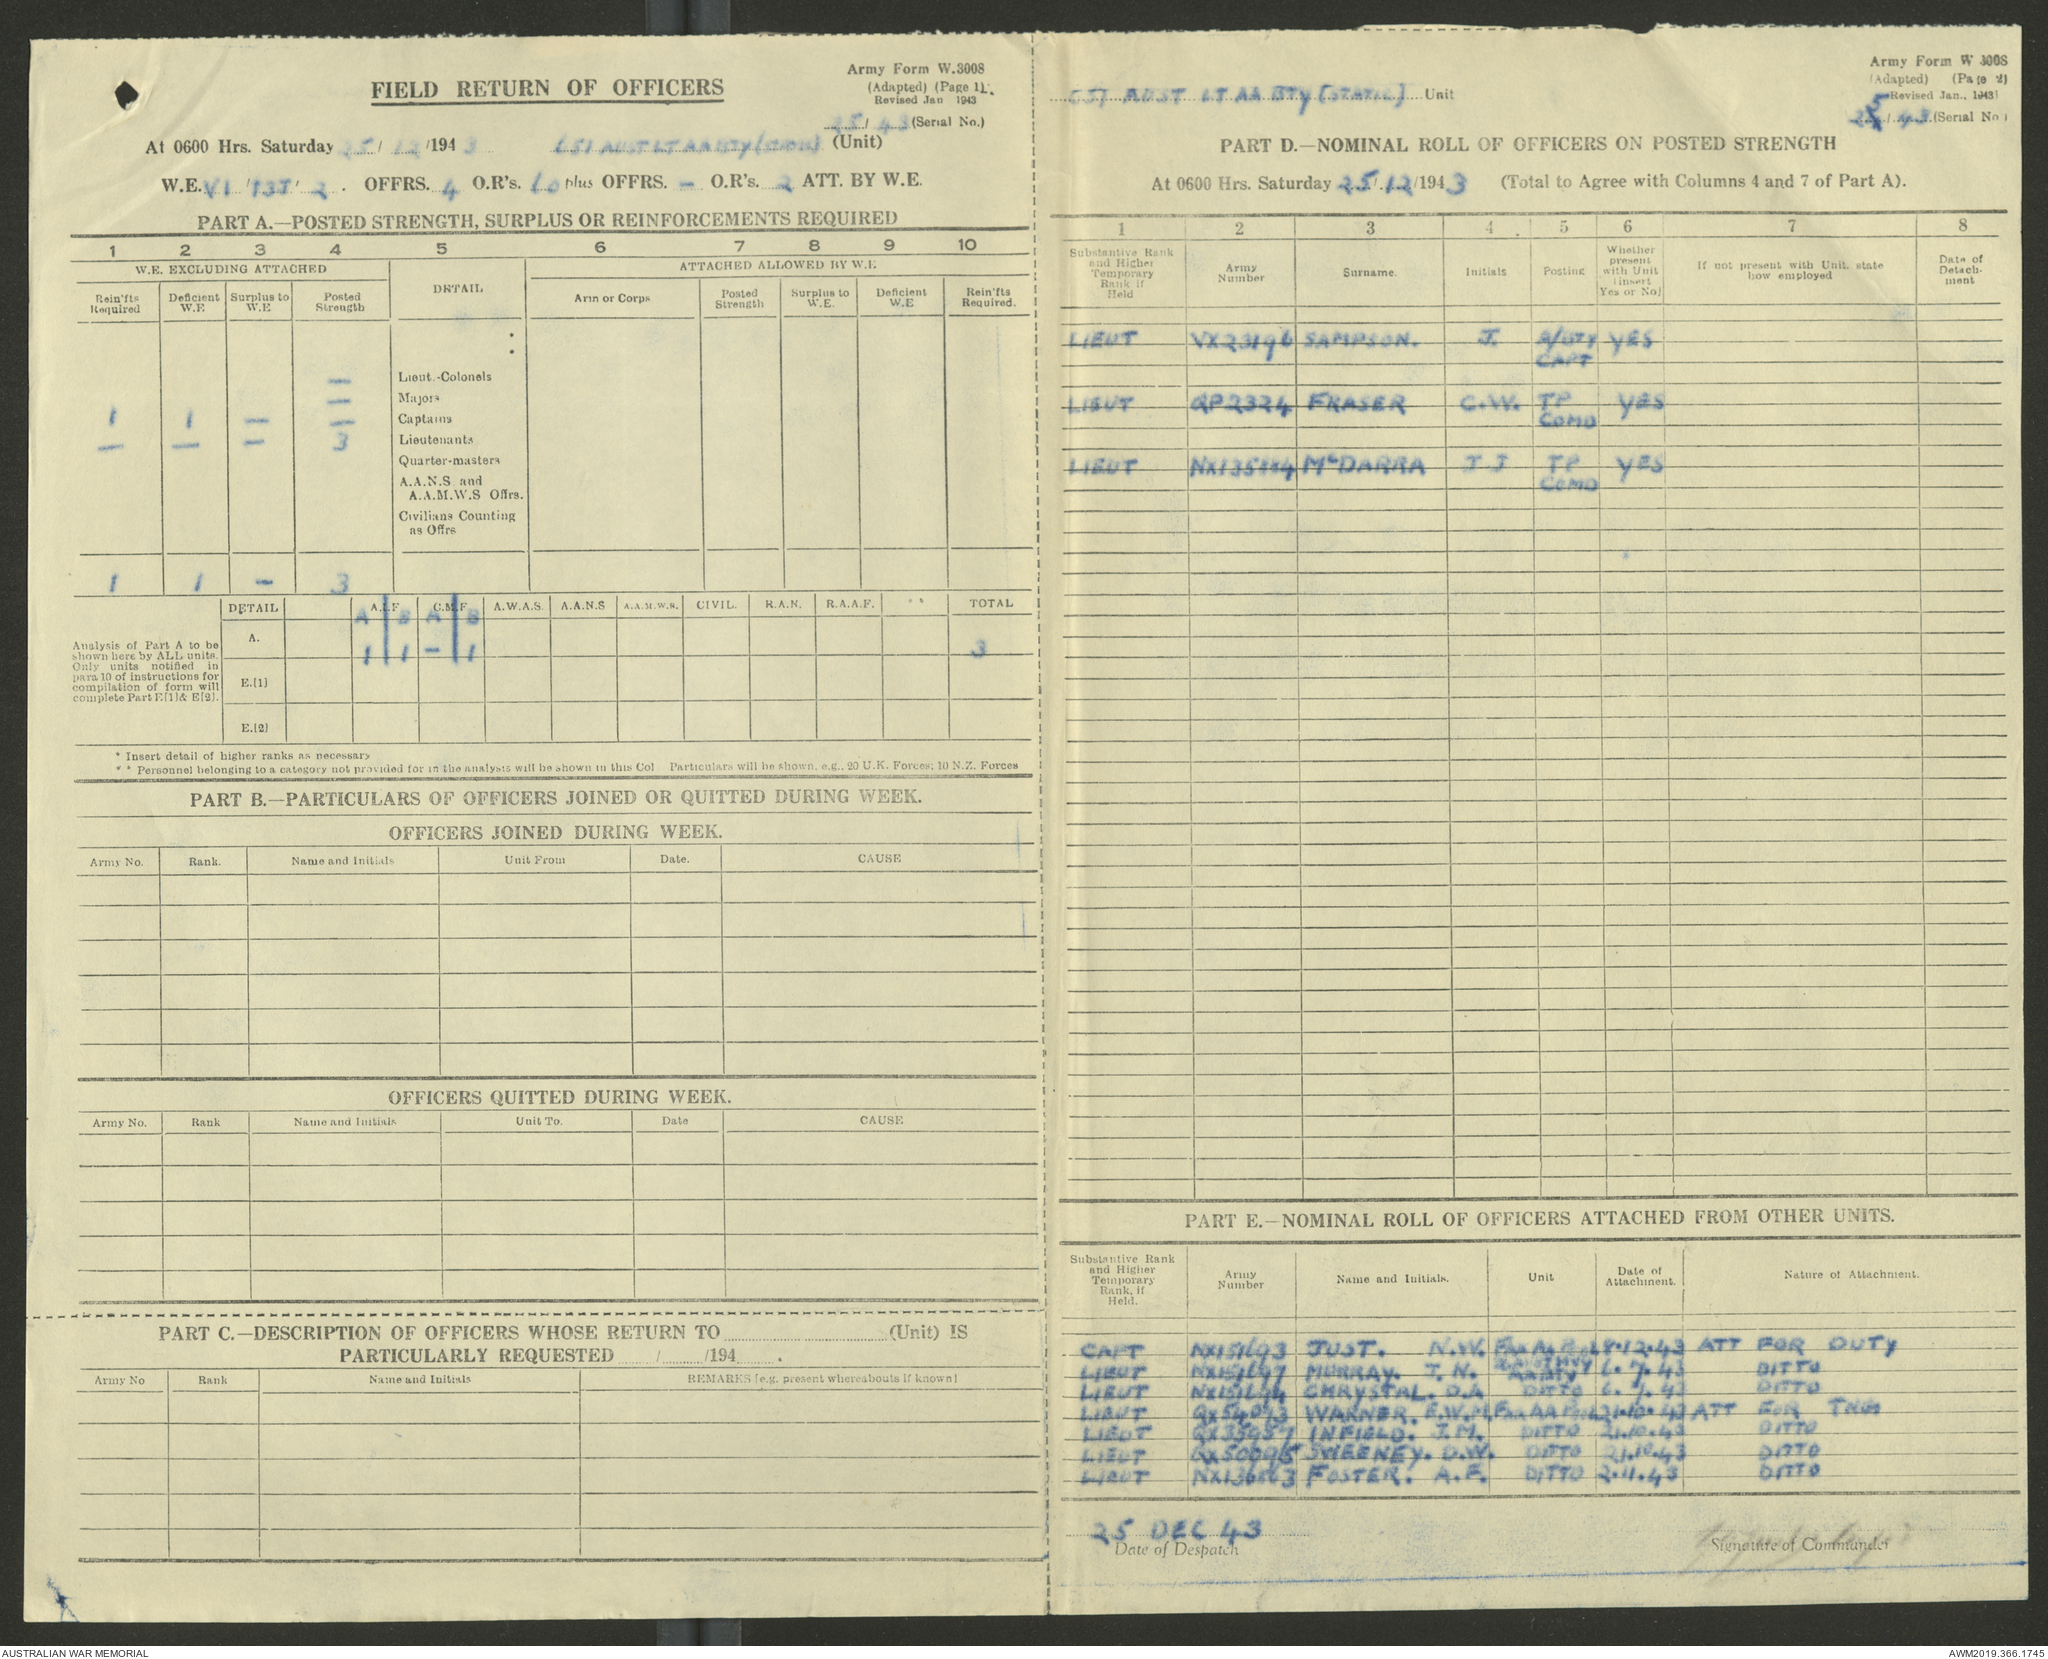 FIELD RETURN OF OFFICERS
Army Form W.3008
(Adapted) (Page 1).
Revised Jan 1943
25/43 (Serial No.)
At 0600 Hrs. Saturday 25/12/1943 AUST LT AA BTY (Unit)
W.E. VI / 13J / 2. OFFRS. 4 O.R's. plus OFFRS. - O.R's. 2 ATT. BY W.E.
PART A.—POSTED STRENGTH, SURPLUS OR REINFORCEMENTS REQUIRED
1 2 3 4 5 6 7 8 9 10
W.E. EXCLUDING ATTACHED DETAIL ATTACHED ALLOWED BY W.E
Rein'fts Required Deficient W.E. Surplus to W.E Posted Strength Arm or Corps Posted Strength Surplus to W.E. Deficient W.E Rein'fts Required.
— Lieut.-Colonels
— Majors
1 1 — — Captains
— — — 3 Lieutenants
Quarter-masters
A.A.N.S and
A.A.M.W.S Offrs.
Civilians Counting
as Offrs
1 1 — 3
DETAIL A.I.F C.M.F A.W.A.S. A.A.N.S A.A.M.W.S. CIVIL. R.A.N. R.A.A.F. * * TOTAL
A B A B
Analysis of Part A to be
shown here by ALL units.
Only units notified in
para 10 of instructions for
compilation of form will
complete Part E[1]& E[2].
A. 1 1 — 1 3
E.[1]
E.[2]
* Insert detail of higher ranks as necessary
* * Personnel belonging to a category not provided for in the analysis will be shown in this Col Particulars will be shown, e.g., 20 U.K. Forces; 10 N.Z. Forces
PART B.—PARTICULARS OF OFFICERS JOINED OR QUITTED DURING WEEK.
OFFICERS JOINED DURING WEEK.
Army No. Rank. Name and Initials Unit From Date. CAUSE
OFFICERS QUITTED DURING WEEK.
Army No. Rank Name and Initials Unit To. Date CAUSE
PART C.—DESCRIPTION OF OFFICERS WHOSE RETURN TO (Unit) IS
PARTICULARLY REQUESTED / /194 .
Army No Rank Name and Initials REMARKS [e.g. present whereabouts if known]
Army Form W 3008
(Adapted) (Page 2)
Revised Jan., 1943)
AUST LT AA BTY (STATIC) Unit
25/43 (Serial No)
PART D.—NOMINAL ROLL OF OFFICERS ON POSTED STRENGTH
At 0600 Hrs. Saturday 25/12/1943 (Total to Agree with Columns 4 and 7 of Part A).
1 2 3 4 5 6 7 8
Substantive Rank and Higher Temporary Rank if Held Army Number Surname. Initials Posting Whether present with Unit (insert Yes or No) If not present with Unit, state how employed Date of Detach-ment
LIEUT VX23196 SAMPSON. J. YES
CAPT
LIEUT QP2324 FRASER C.W. TP YES
COMD
LIEUT McDARRA J J TP YES
COMD
PART E.—NOMINAL ROLL OF OFFICERS ATTACHED FROM OTHER UNITS.
Substantive Rank and Higher Temporary Rank, if Held. Army Number Name and Initials. Unit Date of Attachment. Nature of Attachment.
CAPT JUST. N.W. 12.43 ATT FOR DUTY
LIEUT MURRAY. J.N. 6.7.43 DITTO
LIEUT CHRYSTAL. D.A DITTO 6.7.43 DITTO
LIEUT QX54073 WARNER. E.W.M. 21.10.43 ATT FOR TNG
LIEUT QX35957 INFIELD. J.M. DITTO 21.10.43 DITTO
LIEUT SWEENEY. D.W. DITTO 21.10.43 DITTO
LIEUT FOSTER. A.F. DITTO 2.11.43 DITTO
25 DEC 43
Date of Despatch
Signature of Commander
AUSTRALIAN WAR MEMORIAL
AWM2019.366.1745